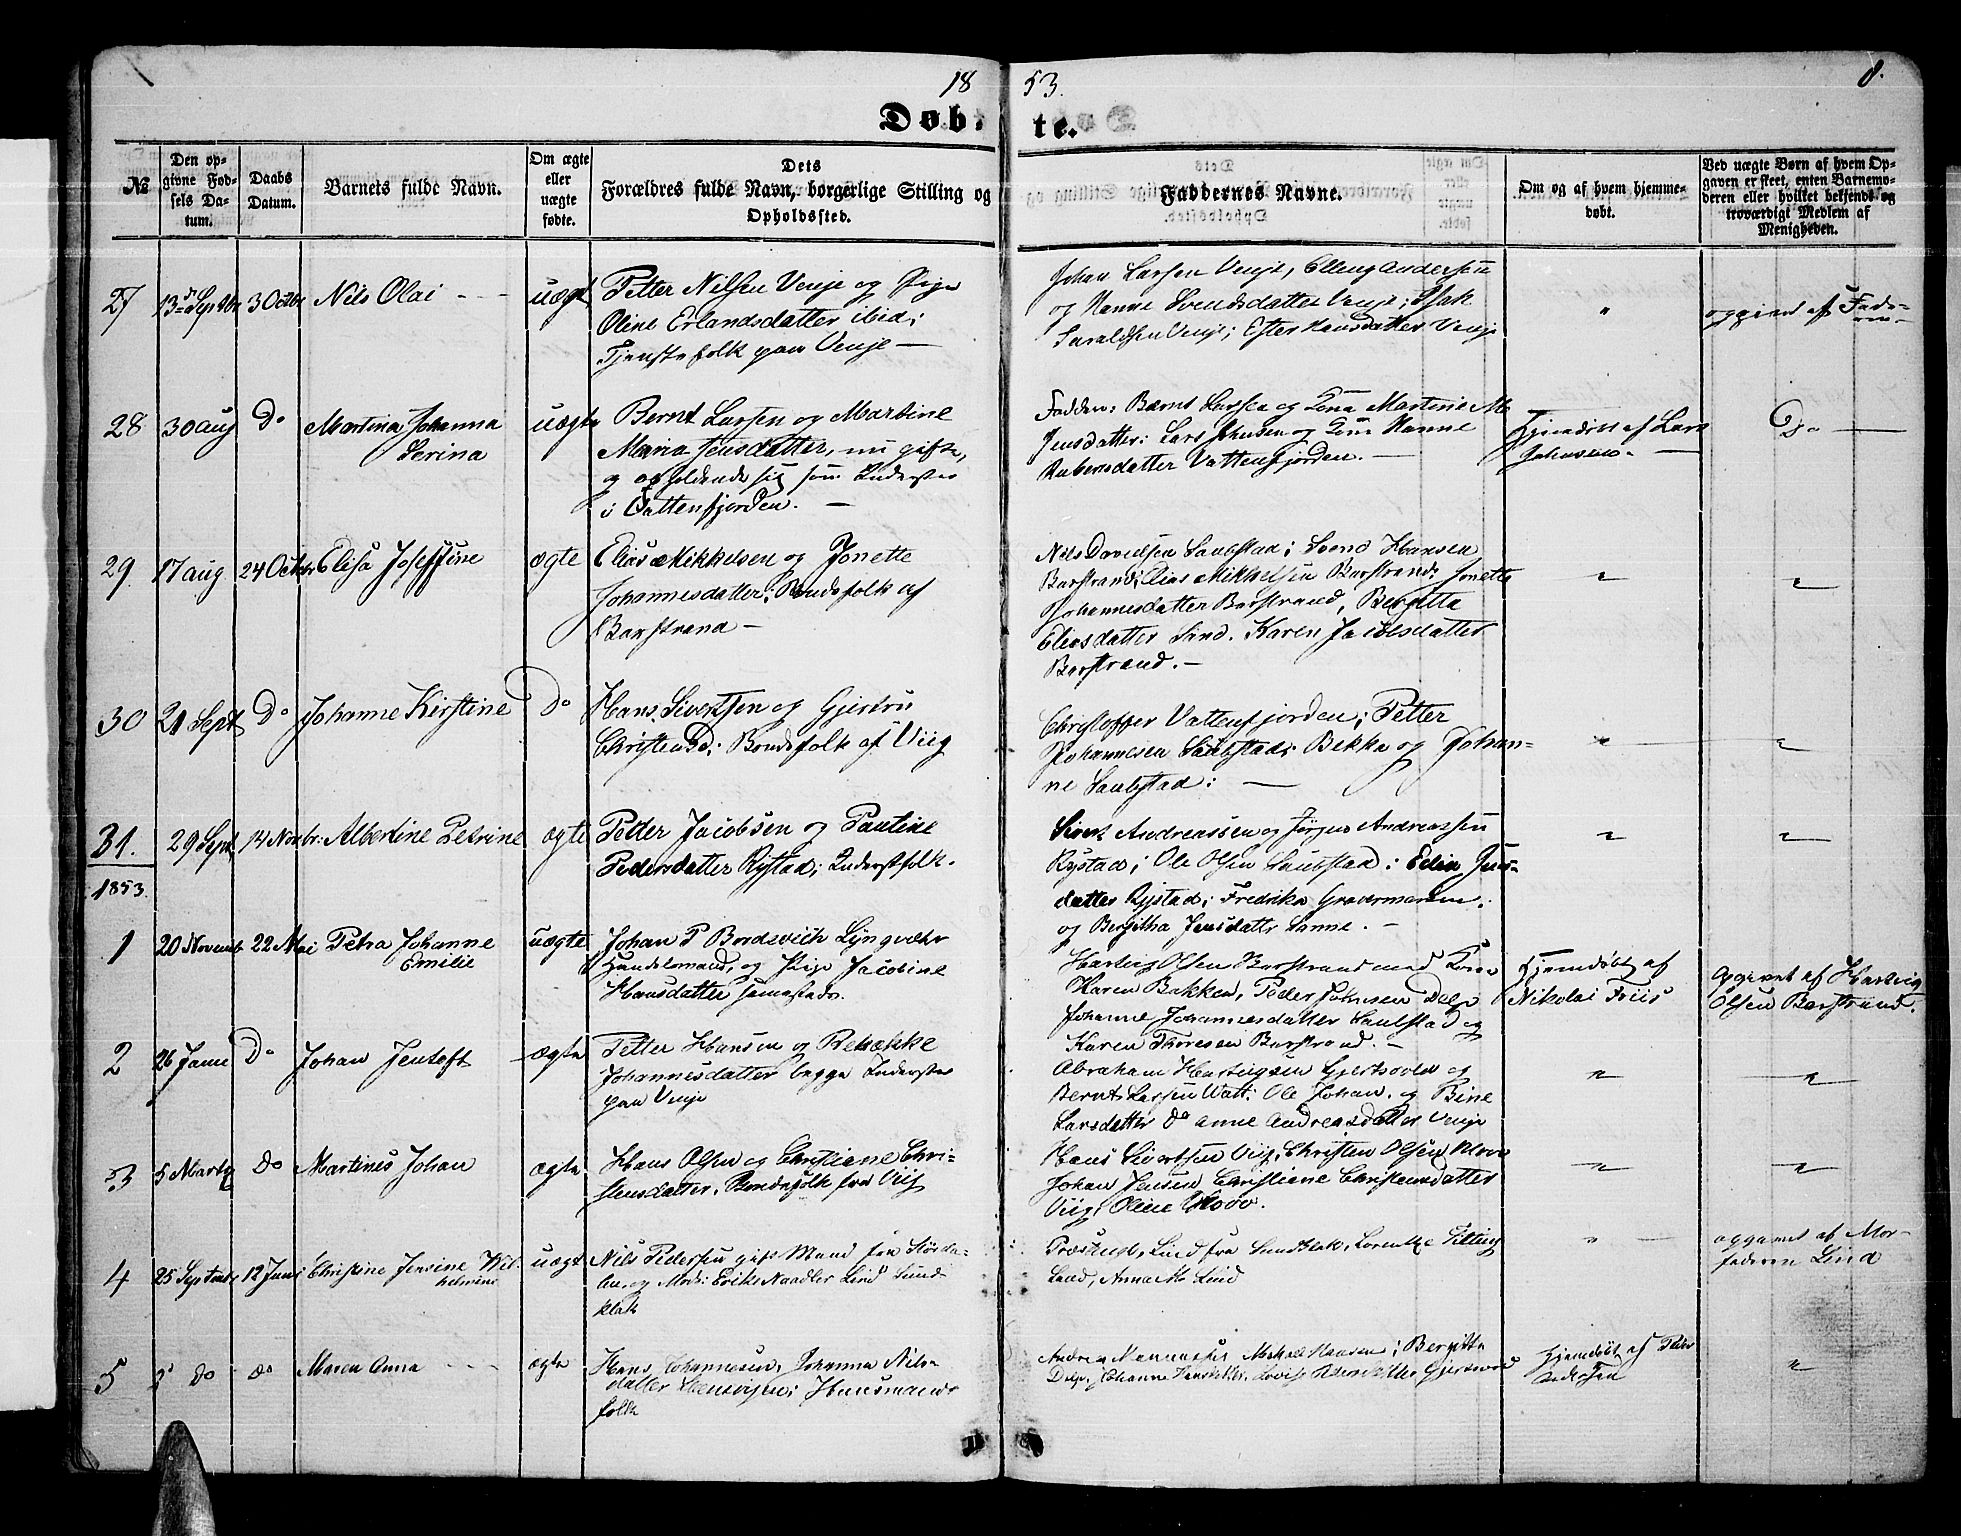 18 53. 8.
Døb- te.
№
Den op-
givne Fød-
sels Da-
tum.
Daabs
Datum.
Barnets fulde Navn.
Om ægte
eller
uægte
fødte.
Dets
Forældres fulde Navn, borgerlige Stilling og
Opholdssted.
Faddernes Navne.
Om og af hvem hjemme-
døbt.
Ved uægte Børn af hvem Op-
gaven er skeet, enten Barnemo-
deren eller hvilket bekjendt og
troværdigt Medlem af
Menigheden.
27 13de Septbr 3 Octbr Nils Olai - - - uægt
Petter Nilsen Venje og Pige
Oline Erlandsdatter ibid;
Tjenstefolk paa Venje —
Johan Larsen Venje, Elling Andersen
og Hanne Svendsdatter Venje; Isak
Venje; Ester Hansdatter Venje
"
opgivet af Fade-
ren
28 30 Aug Do Martina Johanna
Serina
uægte
Bernt Larsen og Martine
Maria Jensdatter, nu gifte,
og opholdende sig som Inderster
i Vattenfjorden. —
Faddere: Bernt Larsen og Kona Martine M.
Jensdatter; Lars Johnsen og Kone Hanne
Rubensdatter Vattenfjorden. —
Hjemdøbt af Lars
Johnsen. —
Do —
29. 17 aug 24 Octbr Elisa Joseffine ægte
Elias Mikkelsen og Jonette
Johannesdatter; Bondefolk af
Barstrand —
Nils Davidsen Saubstad; Svend Hansen
Barstrand; Elias Mikkelsen Barstrand; Jonette
Johannesdatter Barstrand, Bergitta
Eliasdatter Sind. Karen Jacobsdatter
Barstrand. —
"
"
30 21 Sept Do Johanne Kirstine Do
Hans Sivertsen og Gjertru
Christensd; Bondefolk af Viig
Christoffer Vattenfjorden; Petter
Johannesen Saubstad; Bekka og Johan-
ne Saubstad: —
"
"
31. 29 Sept 14 Novbr: Albertine Petrine ægte
Petter Jacobsen og Pauline
Pedersdatter Rystad; Inderstfolk.
Sivert Andreassen og Jørgen Andreassen
Rystad; Ole Olsen Saubstad: Edia Jens-
datter Rystad; Fredrika Gravermann;
og Bergitha Jensdattr Sinne. —
"
"
1853.
1 20 Novemb 22 Mai Petra Johanne
Emilie
uægte
Johan P Bordevich Lyngvær
Handelsmand, og Pige Jacobine
Hansdatter samesteds.
Hartvig Olsen Barstrand med Kone
Karen Bakken, Peder Johnsen Dalje
Johanne Johannesdatter Saubstad og
Karen Thoresen Barstrand. —
Hjemdøbt af
Nikolai Friis
Opgivet af Hartvig
Olsen Barstrand.
2 26 Janu Do Johan Jentoft ægte
Petter Hansen og Rebække
Johannesdatter begge Inderster
paa Venje
Abraham Hartvigsen Gjertsvolen og
Bernt Larsen Watt; Ole Johan. og Bine
Larsdatter do Anne Andreasdatter Venje
"
"
3 5 Marts Do Martines Johan ægte
Hans Olsen og Christiane Chri-
stensdatter, Bondefolk fra Viig
Hans Sivertsen Viig, Christen Olsen
Johan Jensen Christiane Christensdatter
Viig, Oline
"
"
4 25 Septembr 12 Juni Christine Jensine Wil-
helmine
uægt
Nils Pedersen gift Mand fra Størda-
len, og Mod: Erika Naadler Lind Sund-
klak
Lind fra Sundklak, Lorentze
Anna M Lind
"
opgivet af Mor-
faderen Lind
5 do do Maren Anna - - - ægte
Hans Johannesen, Johanna Nils-
datter Huusmands-
folk
Andrea Mikkel Hansen; Bergitta
Dalje, Johanne Lovise Gjertsvold
Hjemdøbt af Peder
Andersen
"